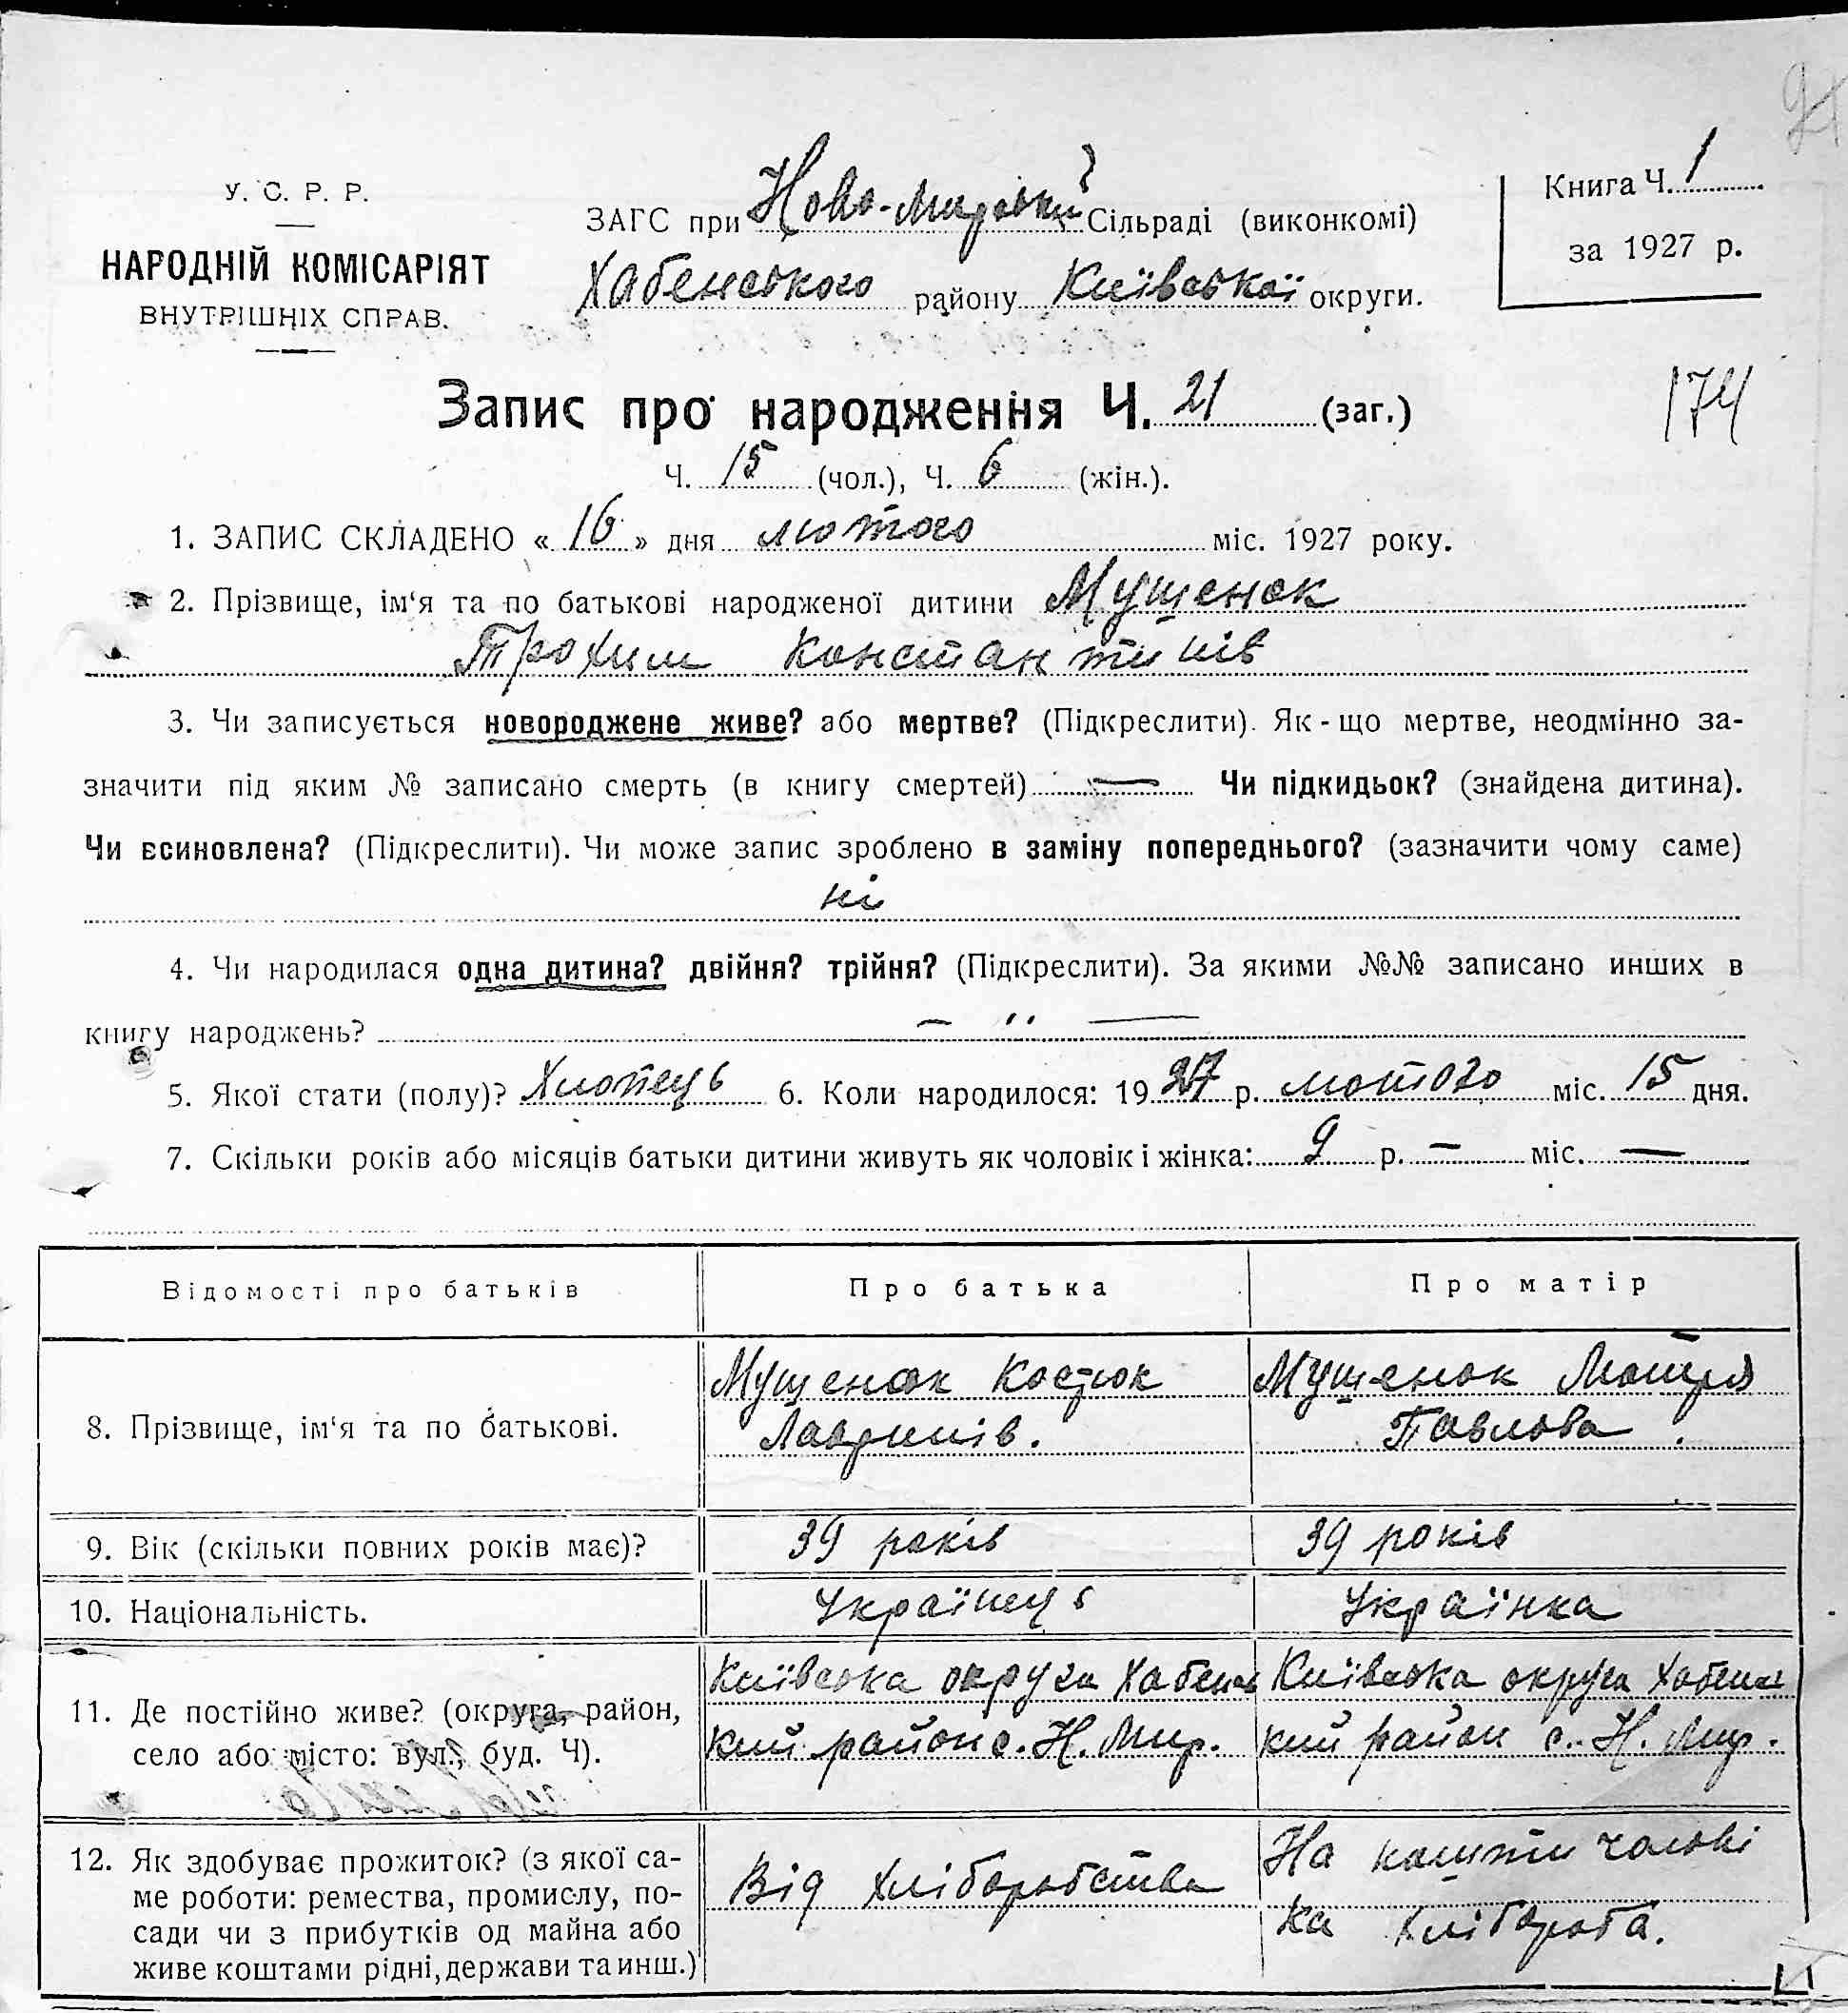 У. С. Р. Р.
НАРОДНІЙ КОМІСАРІЯТ
ВНУТРІШНІХ СПРАВ.
ЗАГС при Ново-Мирський Сільраді (виконкомі)
Хабенського району Київської округи.
Книга Ч. 1
за 1927 р.
Запис про народження Ч. 21 (заг.)
174
Ч. 15 (чол.), Ч. 6 (жін.).
1. ЗАПИС СКЛАДЕНО « 16 » дня лютого міс. 1927 року.
2. Прізвище, ім‘я та по батькові народженої дитини Мушенок
Трохим Константинів
3. Чи записується новороджене живе? або мертве? (Підкреслити). Як-що мертве, неодмінно за-
значити під яким № записано смерть (в книгу смертей) — Чи підкидьок? (знайдена дитина).
Чи всиновлена? (Підкреслити). Чи може запис зроблено в заміну попереднього? (зазначити чому саме)
ні
4. Чи народилася одна дитина? двійня? трійня? (Підкреслити). За якими №№ записано инших в
книгу народжень? — ,, —
5. Якої стати (полу)? Хлопець 6. Коли народилося: 1927 р. лютого міс. 15 дня.
7. Скільки років або місяців батьки дитини живуть як чоловік і жінка: 9 р. — міс. —
Відомості про батьків Про батька Про матір
8. Прізвище, ім‘я та по батькові.
Мушенок Костюк
Лавринів.
Мушенок Мотря
Павлова.
9. Вік (скільки повних років має)? 39 років 39 років
10. Національність. Українець Українка
11. Де постійно живе? (округа, район,
село або місто: вул., буд. Ч).
Київська округа Хабенс
кий район с. Н. Мир.
Київська округа Хабенс
кий район с. Н. Мир.
12. Як здобуває прожиток? (з якої са-
ме роботи: ремества, промислу, по-
сади чи з прибутків од майна або
живе коштами рідні, держави та инш.)
Від хліборобства
На кошти чолові
ка хлібороба.